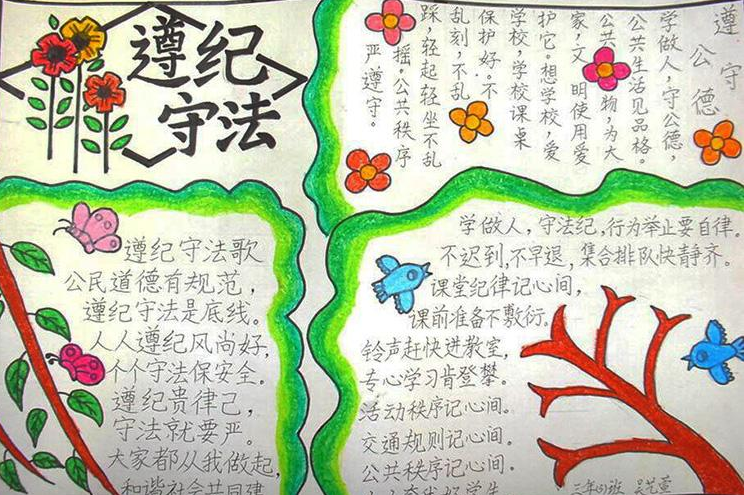 遵纪
守法
遵守
公德
学做人,守公德,
公共生活见品格。
公共 物,为大
家,文明使用爱
护它。想学校,爱
学校,学校课桌
保护好。不
乱刻,不乱
踩,轻起轻坐不乱
摇。公共秩序
严遵守。
遵纪守法歌
公民道德有规范,
遵纪守法是底线。
人人遵纪风尚好,
个个守法保安全。
遵纪贵律己,
守法就要严。
大家都从我做起,
和谐社会共同建
学做人,守法纪,行为举止要自律。
不迟到,不早退,集合排队快静齐。
课堂纪律记心间,
课前准备不敷衍。
铃声赶快进教室,
专心学习肯登攀。
活动秩序记心间。
交通规则记心间。
公共秩序记心间。
好学生